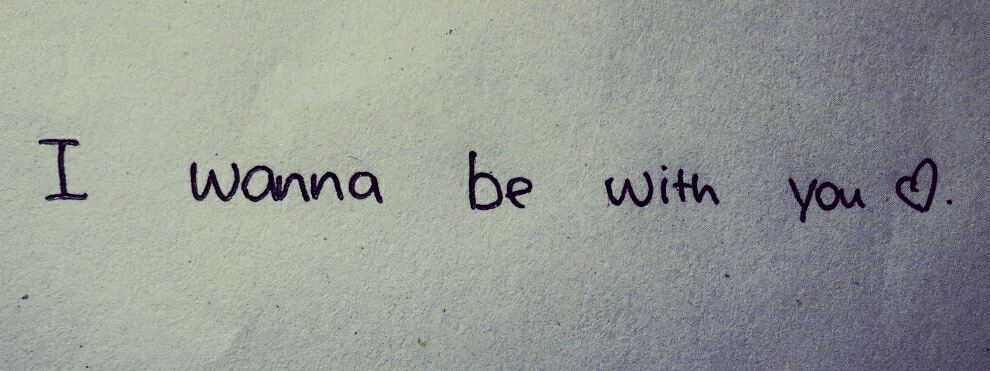 I wanna be with you ♡.